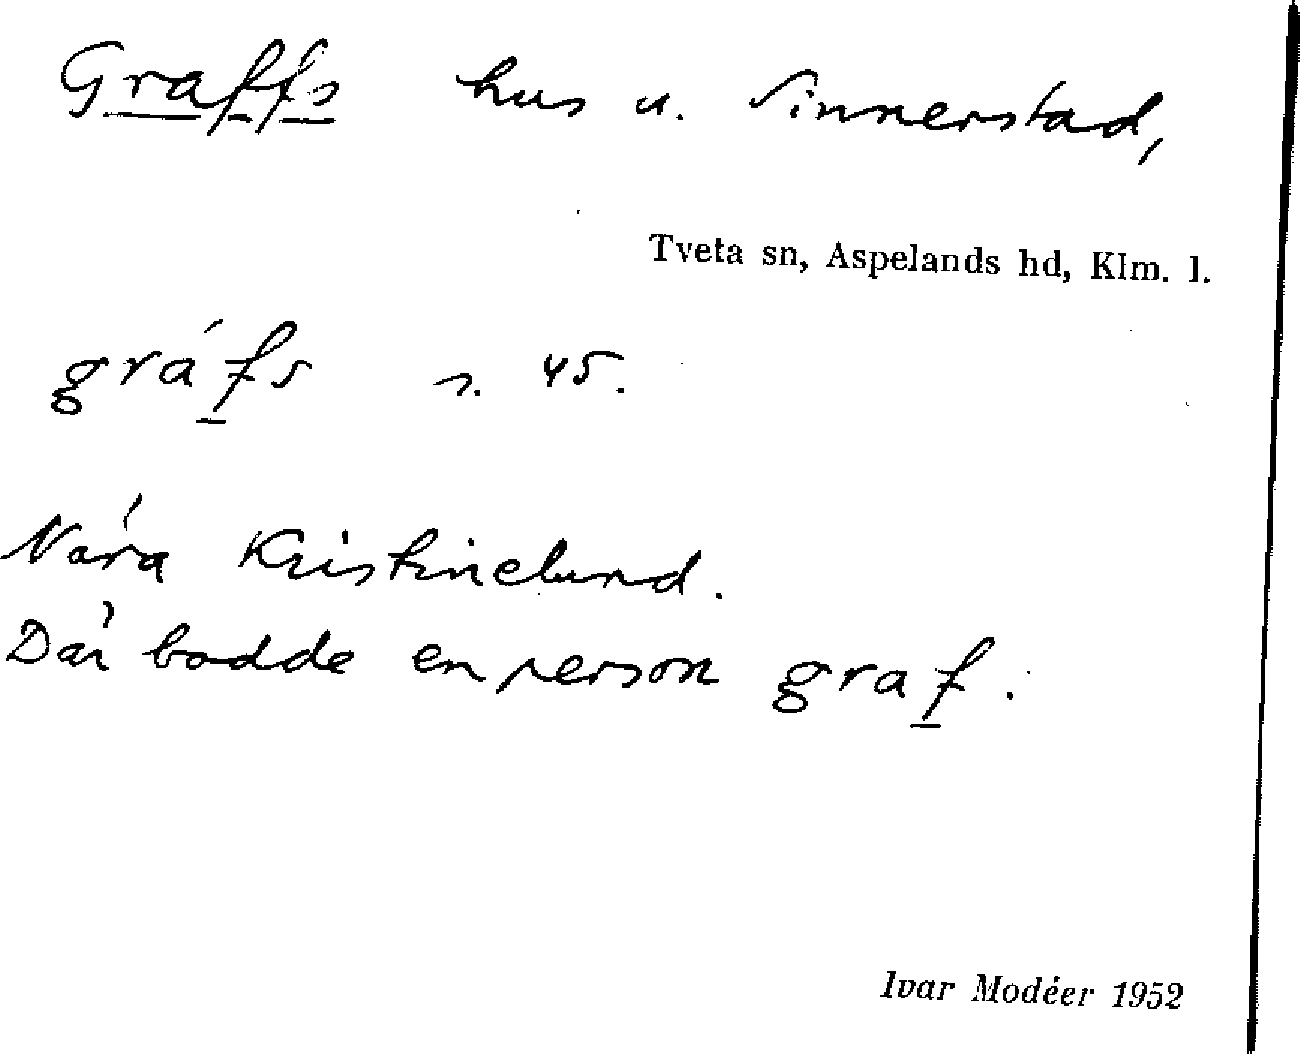 Graffs hus u. Sinnerstad,
Tveta sn, Aspelands hd, Klm. l.
gráfs s. 45.
Nära Kristinelund.
Där bodde en person graf.
Ivar Modéer 1952